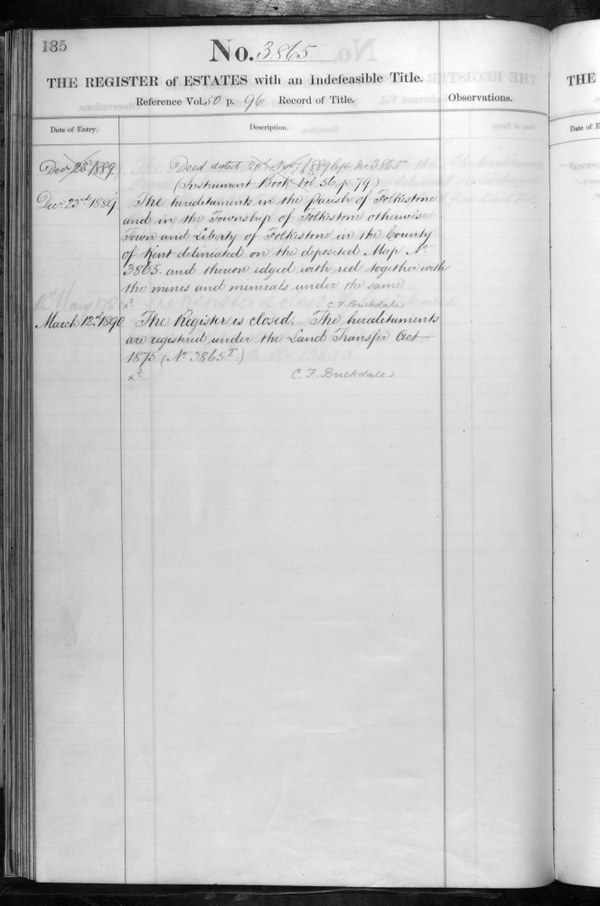 185
No. 3865
THE REGISTER of ESTATES with an Indefeasible Title.
Reference Vol. 10 p. 96 Record of Title.
Observations.
Date of Entry.
Description.
Dec 23d 1889
Deed dated Novr 1889 No 3865
(Instrument Book Vol 56 p 79)
Dec 23rd 1889
The hereditaments in the Parish of Folkestone
and in the Township of Folkestone otherwise
Town and Liberty of Folkestone in the County
of Kent delineated on the deposited Map No
3865 and thereon edged with red together with
the mines and minerals under the same
C. F. Brickdale
March 12th 1890
The Register is closed. The hereditaments
are registered under the Land Transfer Act
1875 (No 3865T)
C. F. Brickdale
THE
Date of E